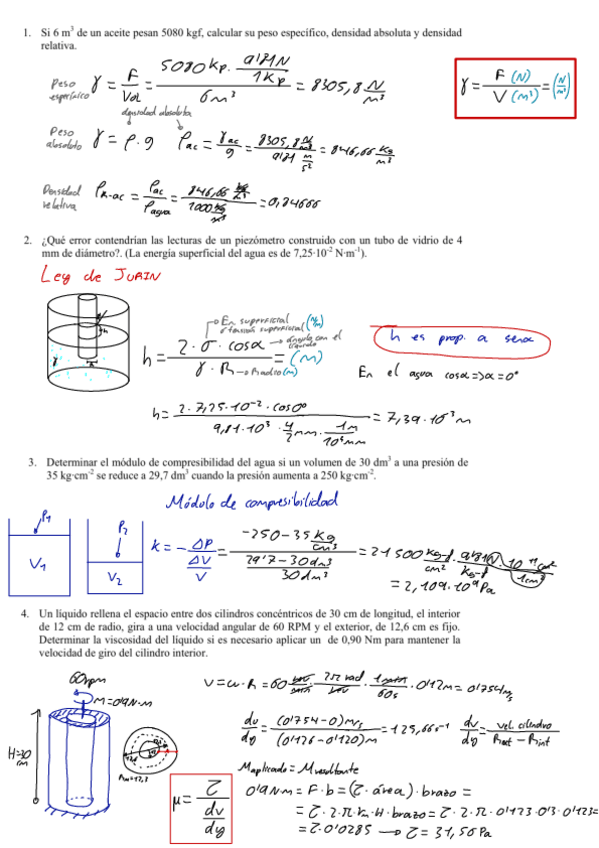 1. Si 6 m³ de un aceite pesan 5080 kgf, calcular su peso específico, densidad absoluta y densidad
relativa.
Peso específico γ = F/Vol = 5080 kp · 9'81N/1Kp / 6m³ = 8305,8 N/m³
γ = F (N) / V (m³) = (N/m³)
densidad absoluta
Peso absoluto γ = ρ · g ρac = γac/g = 8305,8 N/m³ / 9'81 m/s² = 846,66 Kg/m³
Densidad relativa ρR-ac = ρac/ρagua = 846,66 / 1000 = 0,84666
2. ¿Qué error contendrían las lecturas de un piezómetro construido con un tubo de vidrio de 4
mm de diámetro?. (La energía superficial del agua es de 7,25·10⁻² N·m⁻¹).
Ley de JURIN
En superficial
tensión superficial (N/m)
h = 2 · σ · cosα / γ · R = (m)
ángulo con el líquido
Radio (m)
h es prop. a senα
En el agua cosα => α = 0°
h = 2 · 7,25 · 10⁻² · cos0° / 9,81 · 10³ · 4/2 mm · 1m/10³mm = 7,39 · 10⁻³ m
3. Determinar el módulo de compresibilidad del agua si un volumen de 30 dm³ a una presión de
35 kg·cm⁻² se reduce a 29,7 dm³ cuando la presión aumenta a 250 kg·cm⁻².
Módulo de compresibilidad
P₁
P₂
V₁
V₂
k = - ΔP / ΔV/V = -250-35 Kg/cm² / 29'7-30dm³/30dm³ = 21500 kg-f/cm² · 9'81N/kg-f · 10⁴cm²/1m²
= 2,109 · 10⁹ Pa
4. Un líquido rellena el espacio entre dos cilindros concéntricos de 30 cm de longitud, el interior
de 12 cm de radio, gira a una velocidad angular de 60 RPM y el exterior, de 12,6 cm es fijo.
Determinar la viscosidad del líquido si es necesario aplicar un de 0,90 Nm para mantener la
velocidad de giro del cilindro interior.
60rpm
M=0'9N·m
H=30 cm
V = ω · R = 60 · 2π rad · 1min/60s · 0'12m = 0'754 m/s
dv/dy = (0'754-0) m/s / (0'126-0'120)m = 125,66 s⁻¹ dv/dy = vel. cilindro / Rext - Rint
μ = τ / dv/dy
Maplicado = Mresultante
0'9Nm = F · b = (τ · área) · brazo =
= τ · 2 · π · rm · H · brazo = τ · 2 · π · 0'123 · 0'3 · 0'123 =
= τ · 0'0285 → τ = 31,56 Pa